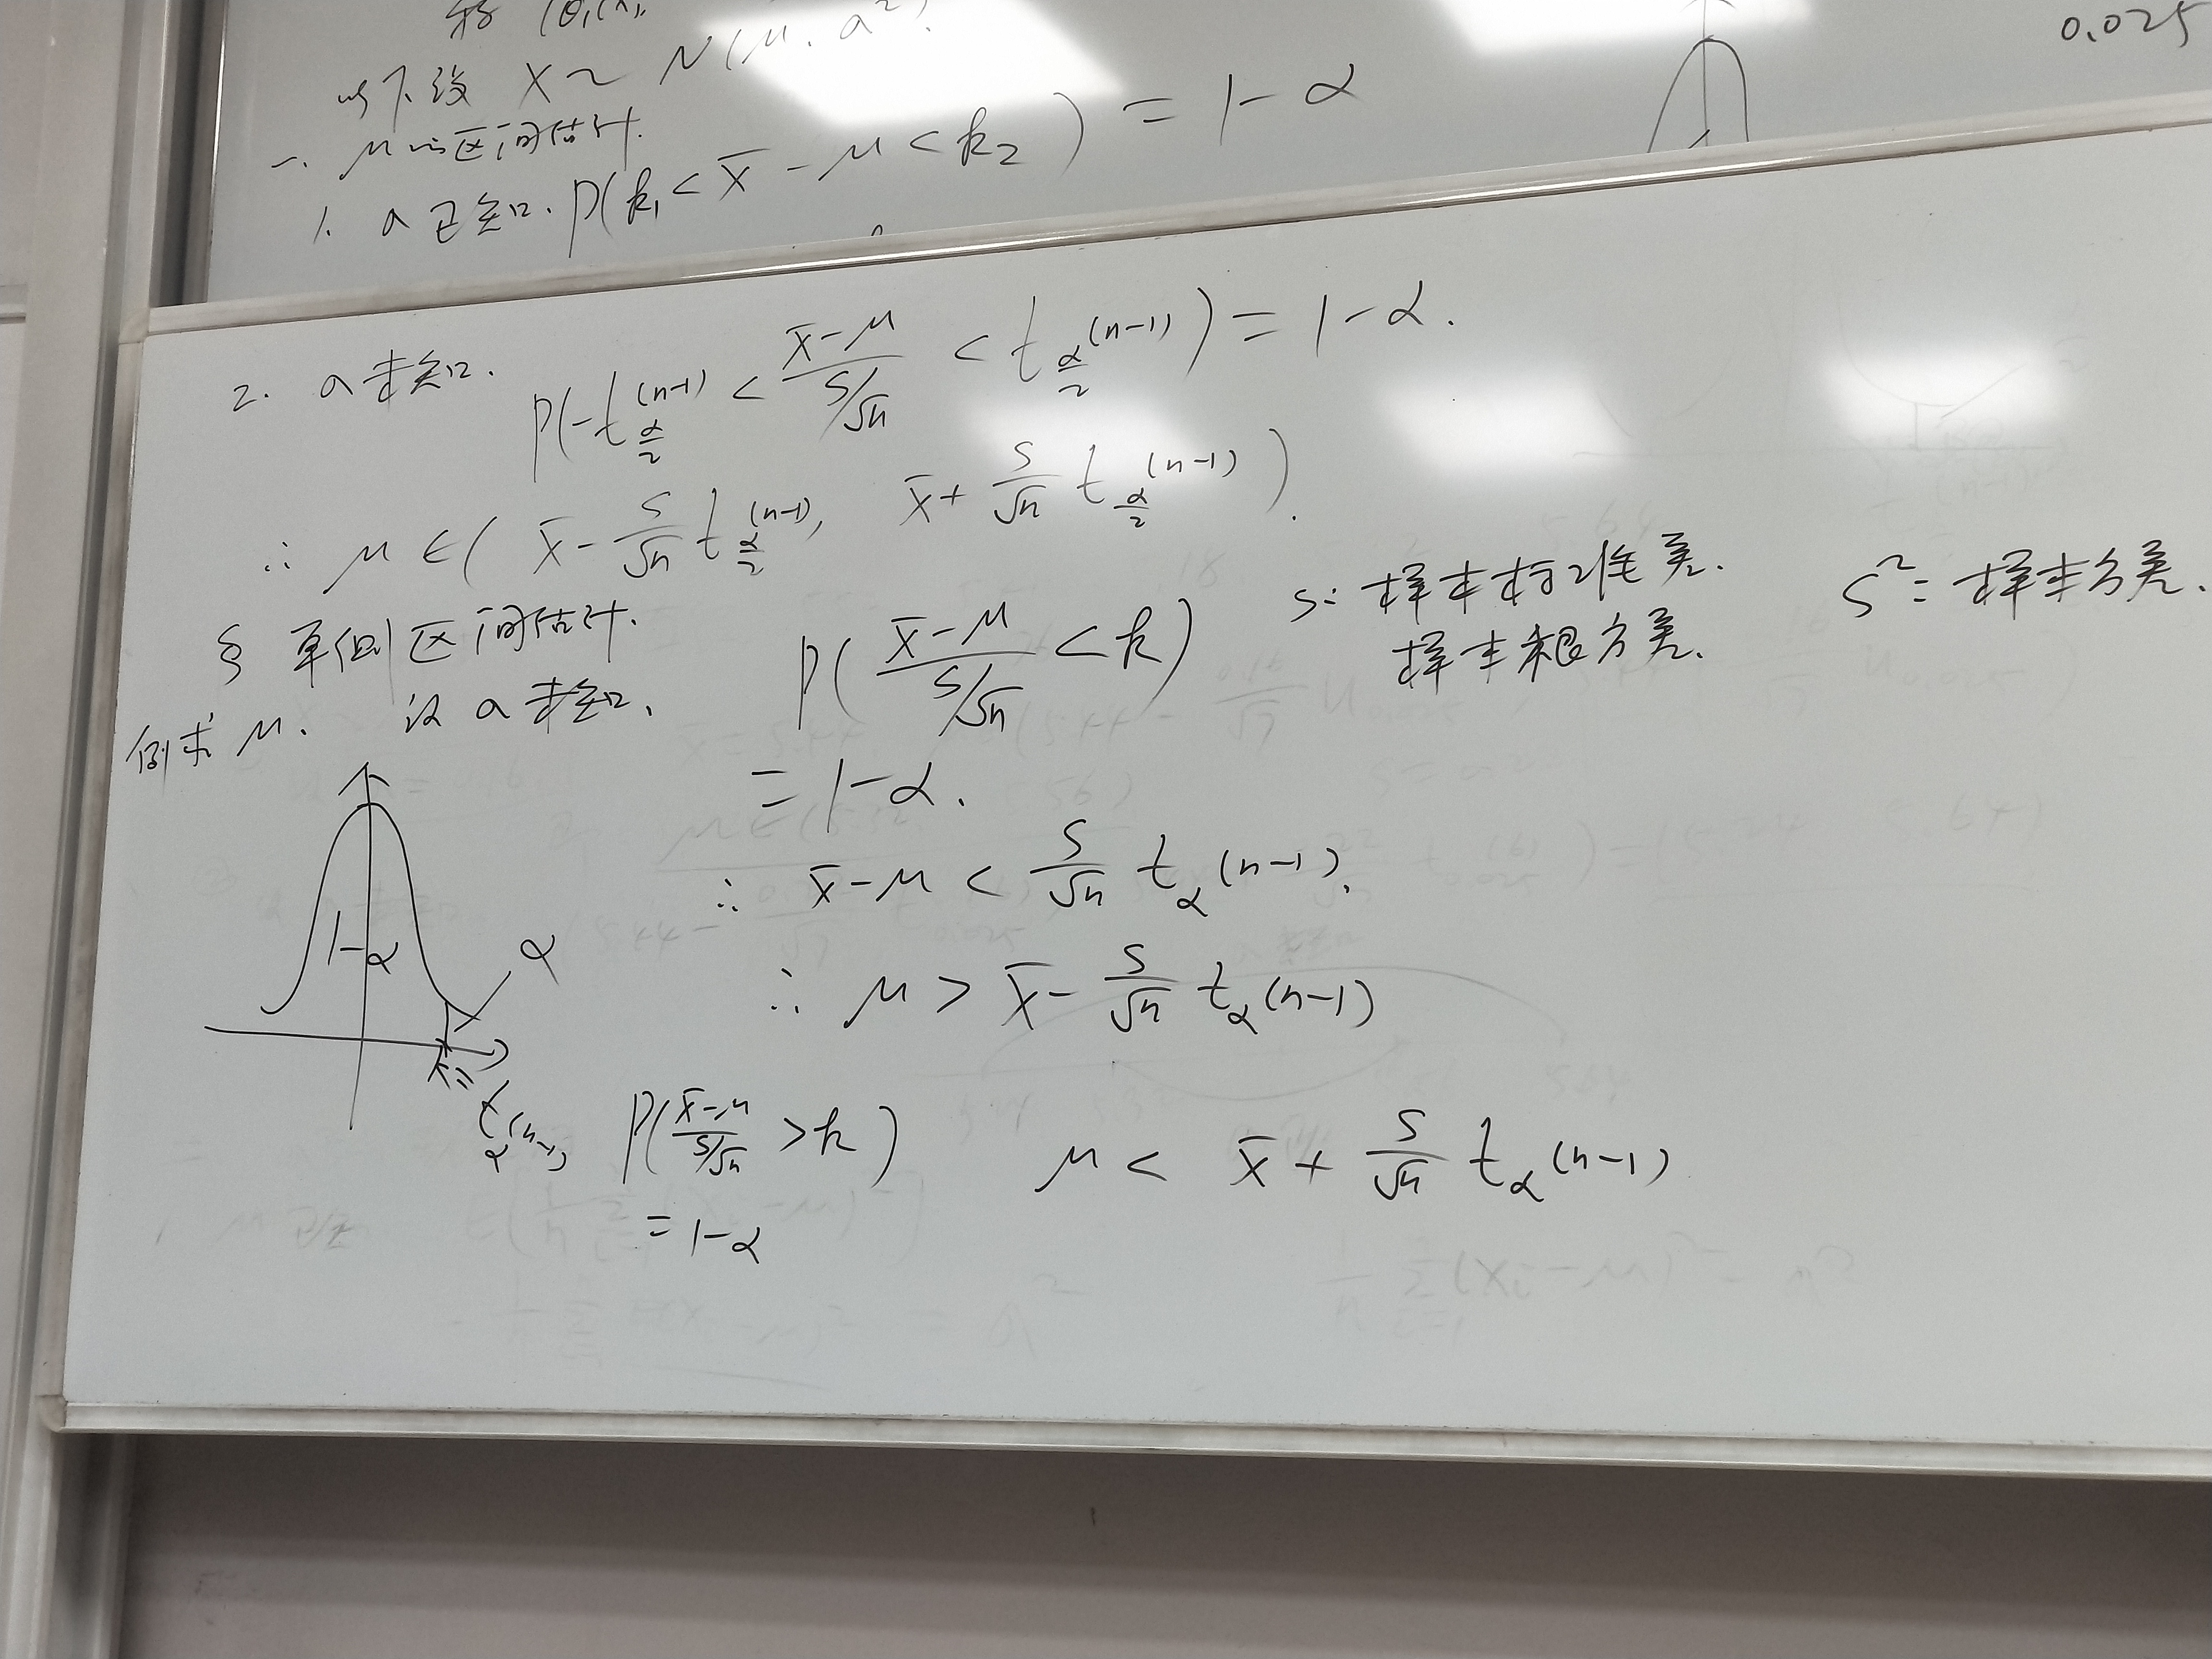 0.025
以下设 X~N(μ, a²).
一. μ的区间估计.
1. a已知. P(k₁< x̄ - μ < k₂) = 1-α
2. a未知. P(-t_{α/2}(n-1) < (x̄-μ)/(S/√n) < t_{α/2}(n-1)) = 1-α.
∴ μ∈( x̄ - S/√n t_{α/2}(n-1), x̄ + S/√n t_{α/2}(n-1) ).
S: 样本标准差. S²: 样本方差.
样本根方差.
§ 单侧区间估计.
例求μ. 设a未知. P( (x̄-μ)/(S/√n) < k )
= 1-α.
∴ x̄-μ < S/√n t_α(n-1).
1-α
α
∴ μ > x̄ - S/√n t_α(n-1)
k=
t_α(n-1)
P( (x̄-μ)/(S/√n) > k ) μ < x̄ + S/√n t_α(n-1)
= 1-α